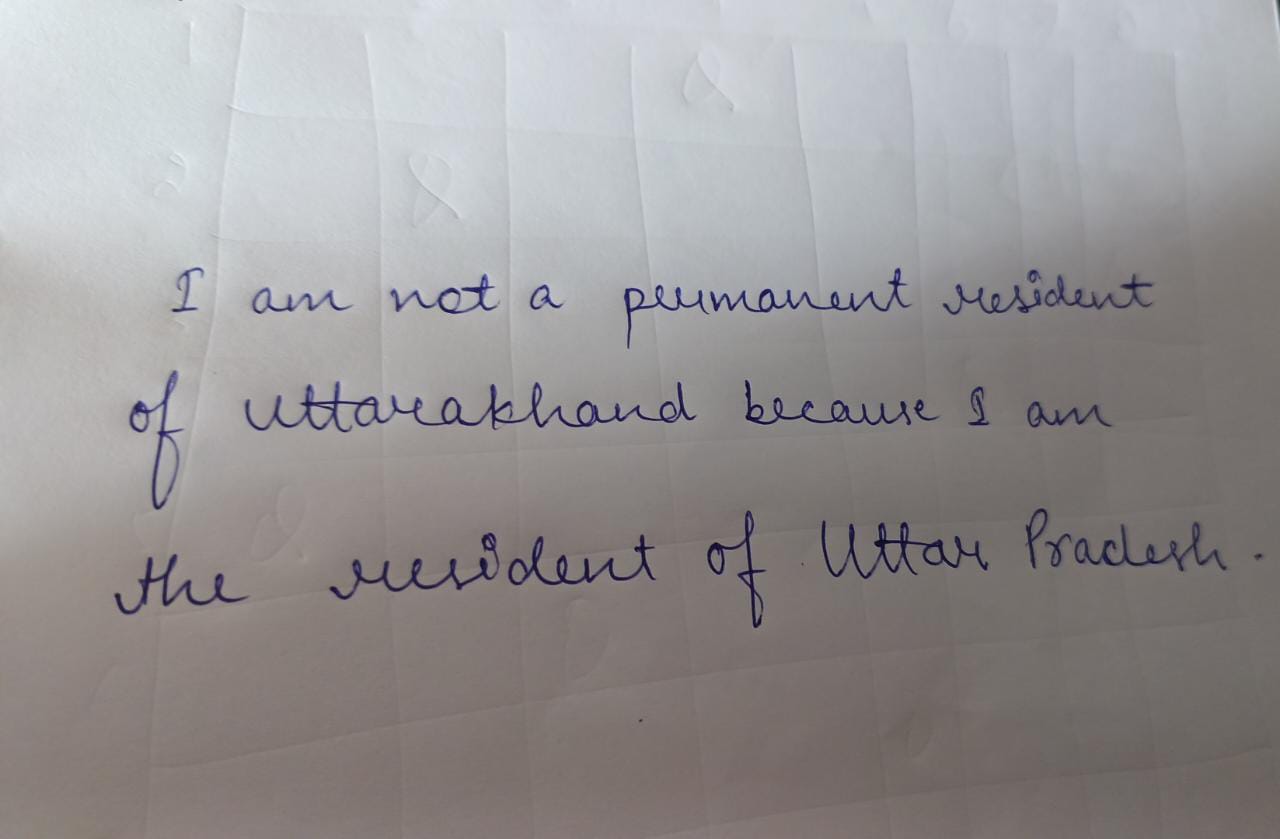 I am not a permanent resident
of Uttarakhand because I am
the resident of Uttar Pradesh.